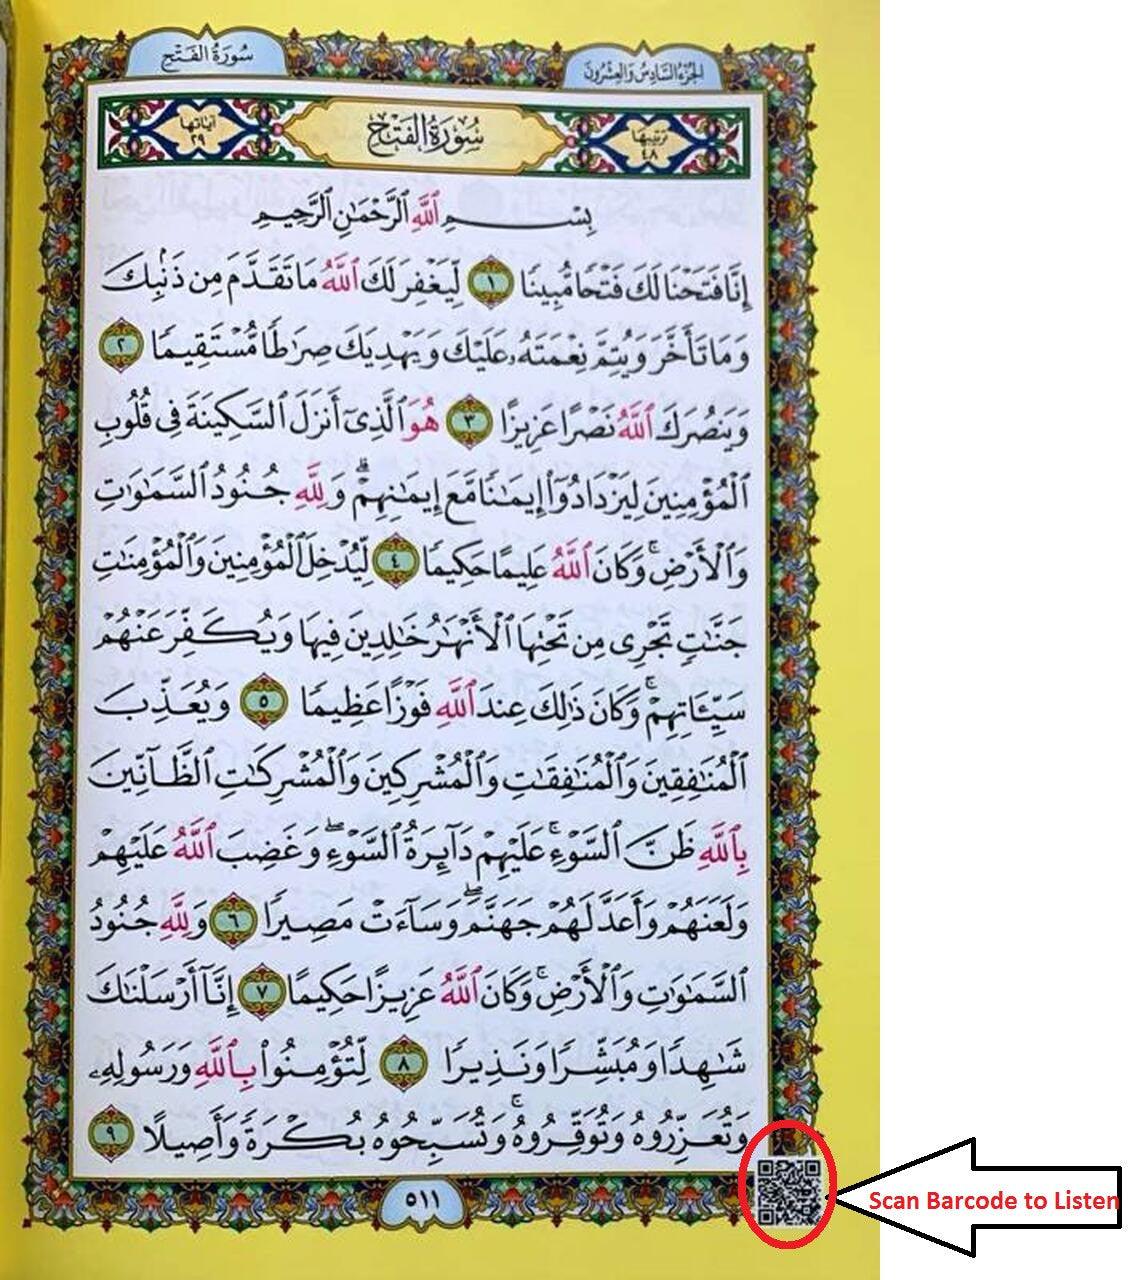 سُورَةُ الفَتْحِ
الجُزْءُ السَّادِسُ وَالعِشْرُونَ
آيَاتُهَا ٢٩
سُورَةُ الفَتْحِ
تَرْتِيبُهَا ٤٨
بِسْمِ ٱللَّهِ ٱلرَّحْمَٰنِ ٱلرَّحِيمِ
إِنَّا فَتَحْنَا لَكَ فَتْحًا مُّبِينًا ١ لِّيَغْفِرَ لَكَ ٱللَّهُ مَا تَقَدَّمَ مِن ذَنۢبِكَ
وَمَا تَأَخَّرَ وَيُتِمَّ نِعْمَتَهُۥ عَلَيْكَ وَيَهْدِيَكَ صِرَٰطًا مُّسْتَقِيمًا ٢
وَيَنصُرَكَ ٱللَّهُ نَصْرًا عَزِيزًا ٣ هُوَ ٱلَّذِىٓ أَنزَلَ ٱلسَّكِينَةَ فِى قُلُوبِ
ٱلْمُؤْمِنِينَ لِيَزْدَادُوٓا۟ إِيمَٰنًا مَّعَ إِيمَٰنِهِمْ ۗ وَلِلَّهِ جُنُودُ ٱلسَّمَٰوَٰتِ
وَٱلْأَرْضِ ۚ وَكَانَ ٱللَّهُ عَلِيمًا حَكِيمًا ٤ لِّيُدْخِلَ ٱلْمُؤْمِنِينَ وَٱلْمُؤْمِنَٰتِ
جَنَّٰتٍ تَجْرِى مِن تَحْتِهَا ٱلْأَنْهَٰرُ خَٰلِدِينَ فِيهَا وَيُكَفِّرَ عَنْهُمْ
سَيِّـَٔاتِهِمْ ۚ وَكَانَ ذَٰلِكَ عِندَ ٱللَّهِ فَوْزًا عَظِيمًا ٥ وَيُعَذِّبَ
ٱلْمُنَٰفِقِينَ وَٱلْمُنَٰفِقَٰتِ وَٱلْمُشْرِكِينَ وَٱلْمُشْرِكَٰتِ ٱلظَّآنِّينَ
بِٱللَّهِ ظَنَّ ٱلسَّوْءِ ۚ عَلَيْهِمْ دَآئِرَةُ ٱلسَّوْءِ ۖ وَغَضِبَ ٱللَّهُ عَلَيْهِمْ
وَلَعَنَهُمْ وَأَعَدَّ لَهُمْ جَهَنَّمَ ۖ وَسَآءَتْ مَصِيرًا ٦ وَلِلَّهِ جُنُودُ
ٱلسَّمَٰوَٰتِ وَٱلْأَرْضِ ۚ وَكَانَ ٱللَّهُ عَزِيزًا حَكِيمًا ٧ إِنَّآ أَرْسَلْنَٰكَ
شَٰهِدًا وَمُبَشِّرًا وَنَذِيرًا ٨ لِّتُؤْمِنُوا۟ بِٱللَّهِ وَرَسُولِهِۦ
وَتُعَزِّرُوهُ وَتُوَقِّرُوهُ ۚ وَتُسَبِّحُوهُ بُكْرَةً وَأَصِيلًا ٩
Scan Barcode to Listen
٥١١